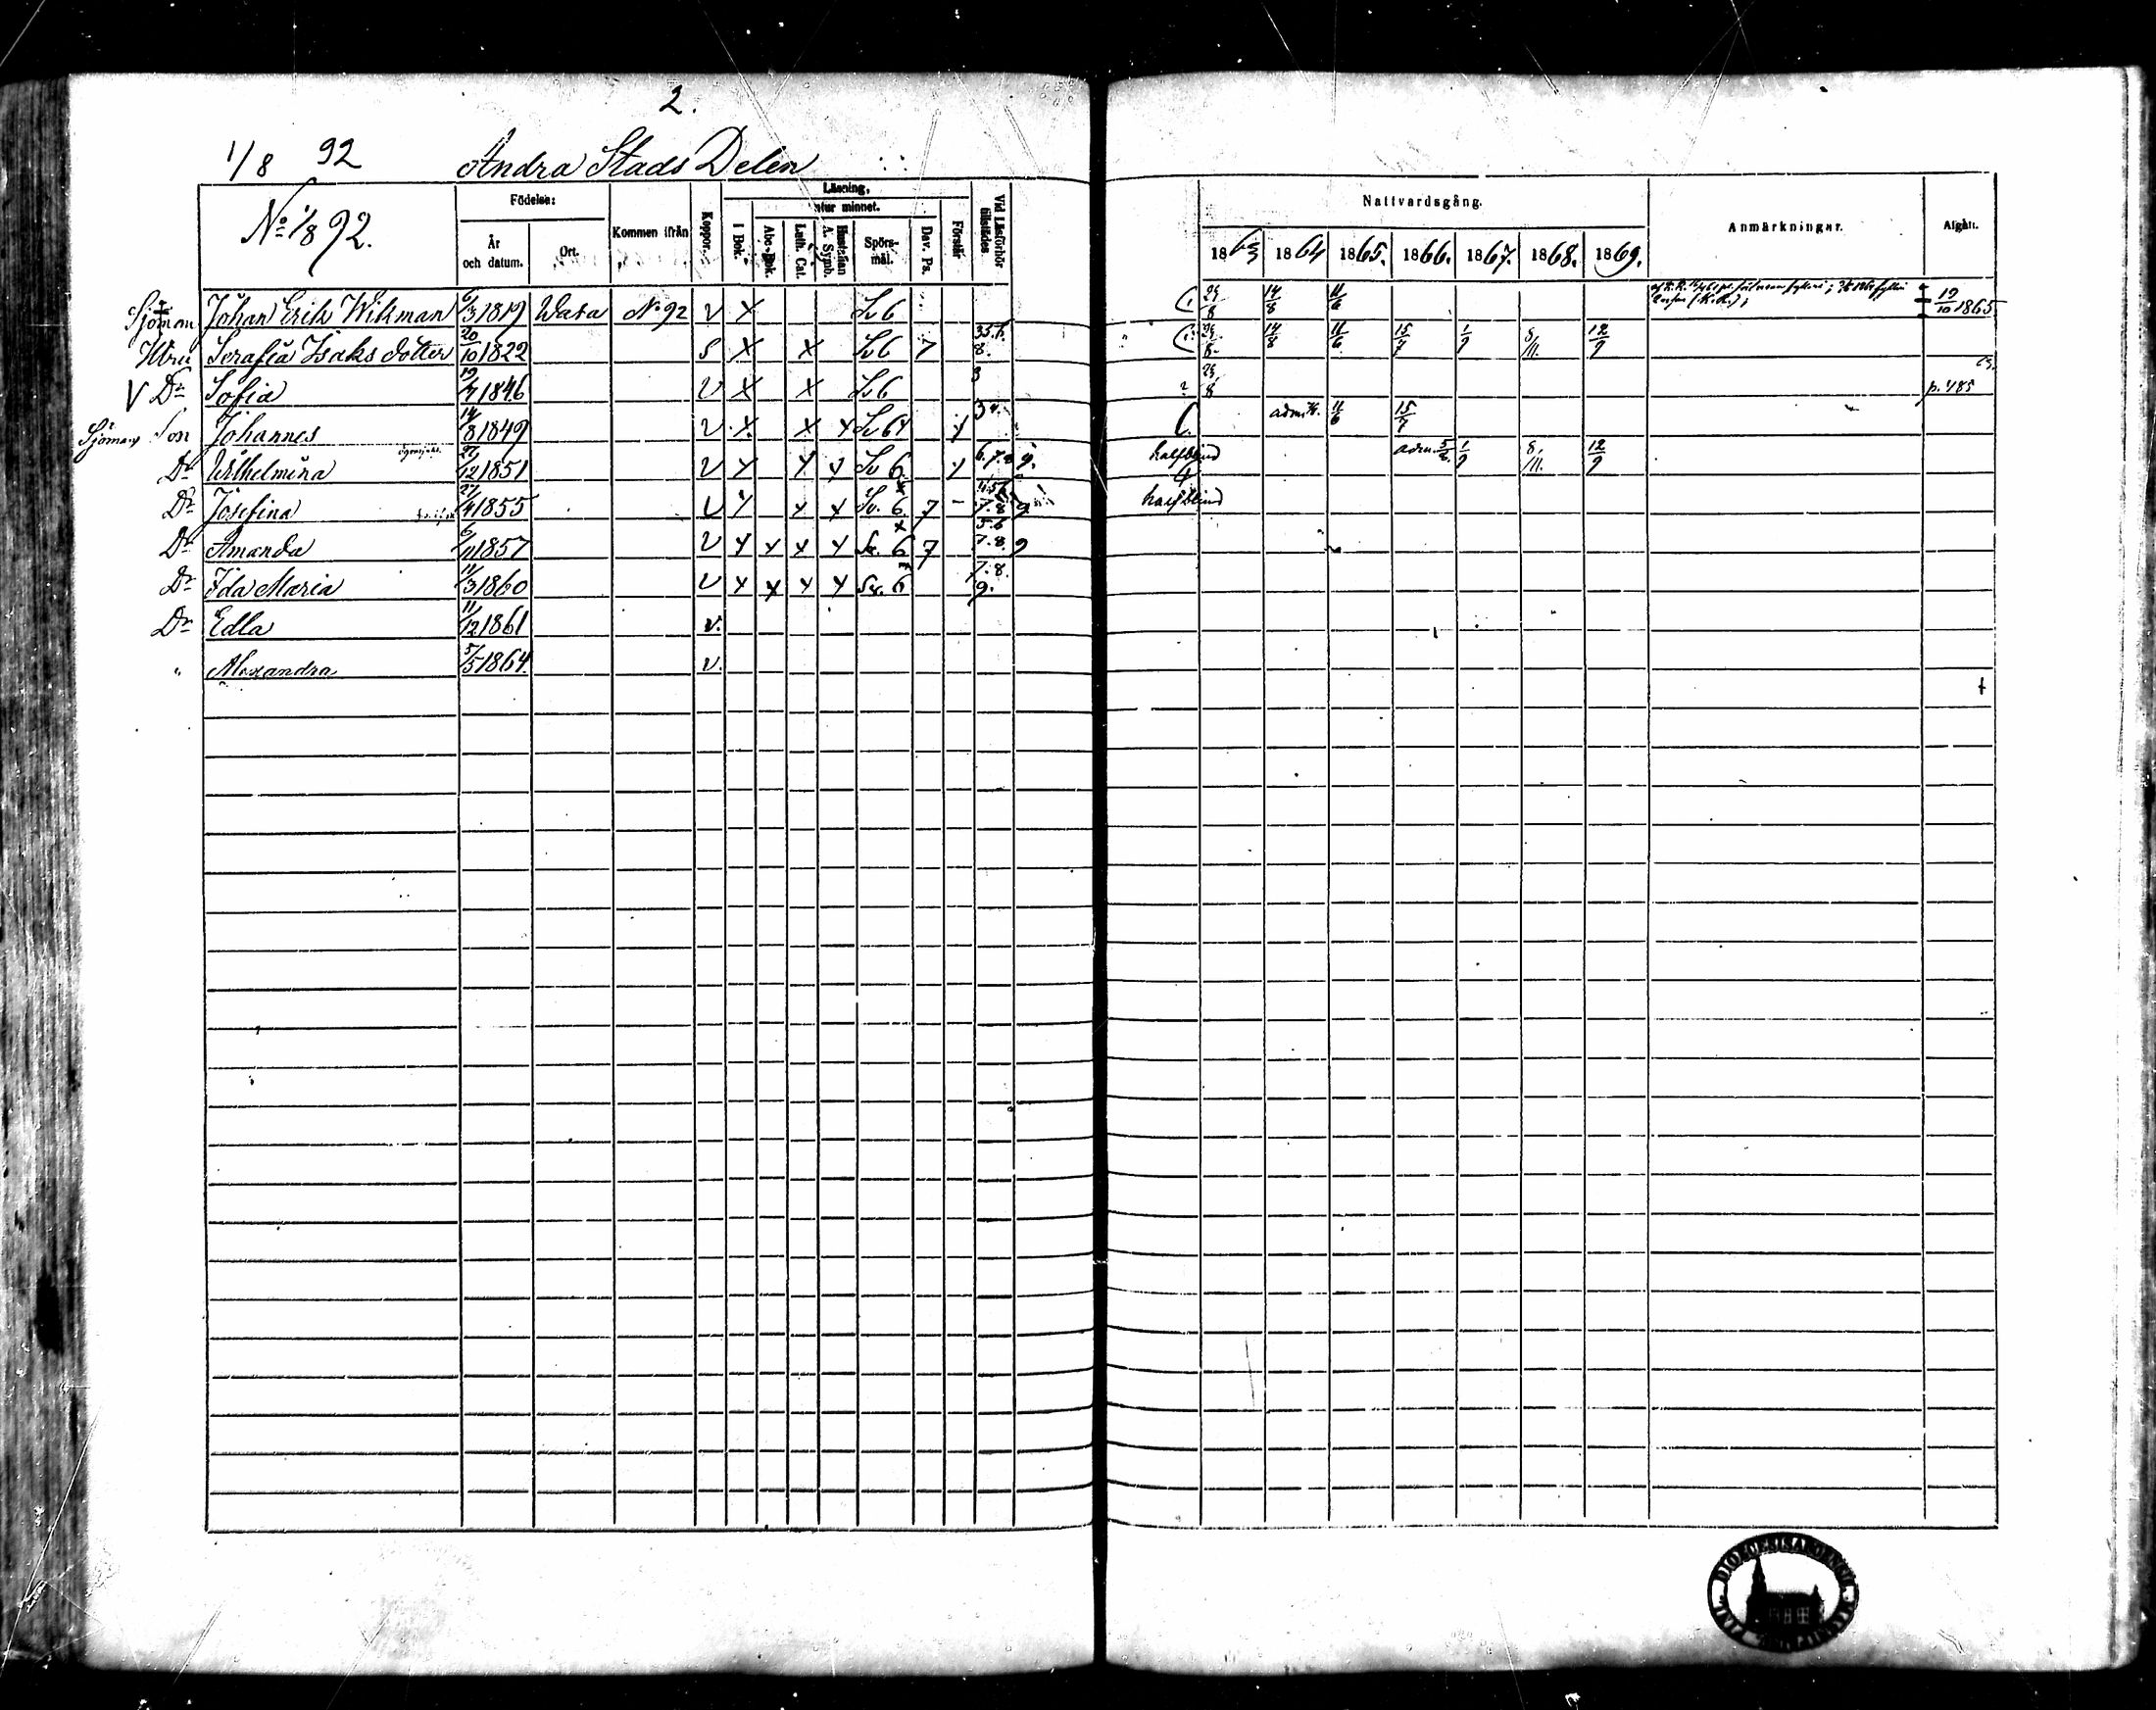 2.
1/8 92 Andra Stads Delen
No 1/8 92.
Födelse:
År och datum.
Ort.
Kommen ifrån
Koppor.
Läsning,
utur minnet.
I Bok.
Abc-Bok.
Luth. Cat.
Hustaflan A. Symb.
Spörsmål.
Dav. Ps.
Förstår
Vid Läsförhör tillstädes.
Nattvardsgång.
1863 1864 1865. 1866. 1867. 1868. 1869.
Anmärkningar.
Afgått.
Sjöman Johan Erik Wikman 6/3 1819 Wasa No 92 v x Sv 6 29/8 14/8 11/6 † 19/10 1865
Hstru Serafia Isaks dotter 20/10 1822 s x x Sv 6 7 29/8 14/8 11/6 15/7 1/9 8/11. 12/9
V Dr Sofia 19/7 1846 v x x Sv 6 3 29/8 p. 485
Sjöman Son Johannes 14/8 1849 v x x x Sv 6 x 11/6 15/7
Dr Wilhelmina 1851 v x x x Sv 6 x 6.7.8 9. halfblind adm. 1/9 8/11. 12/9
Dr Josefina 1855 v x x x Sv. 6 7 – 7.8 9 halfblind
Dr Amanda 6/11 1857 v x x x x Sv. 6 7 5.6 7.8. 9
Dr Ida Maria 11/3 1860 v x x x x Sv. 6 7.8. 9.
Dr Edla 11/12 1861 v.
" Alexandra 5/5 1864 v. †